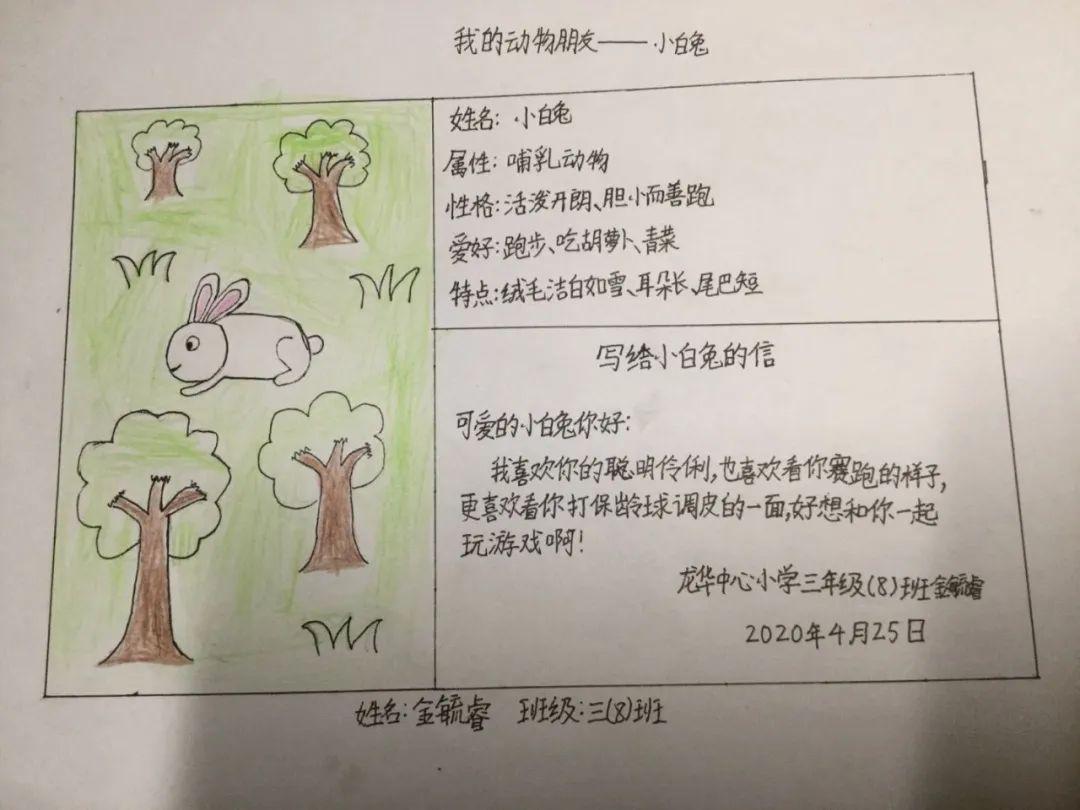 我的动物朋友——小白兔
姓名: 小白兔
属性: 哺乳动物
性格:活泼开朗、胆小而善跑
爱好:跑步、吃胡萝卜、青菜
特点:绒毛洁白如雪、耳朵长、尾巴短
写给小白兔的信
可爱的小白兔你好:
我喜欢你的聪明伶俐,也喜欢看你赛跑的样子,
更喜欢看你打保龄球调皮的一面,好想和你一起
玩游戏啊!
龙华中心小学三年级(8)班金毓睿
2020年4月25日
姓名:金毓睿 班级:三(8)班